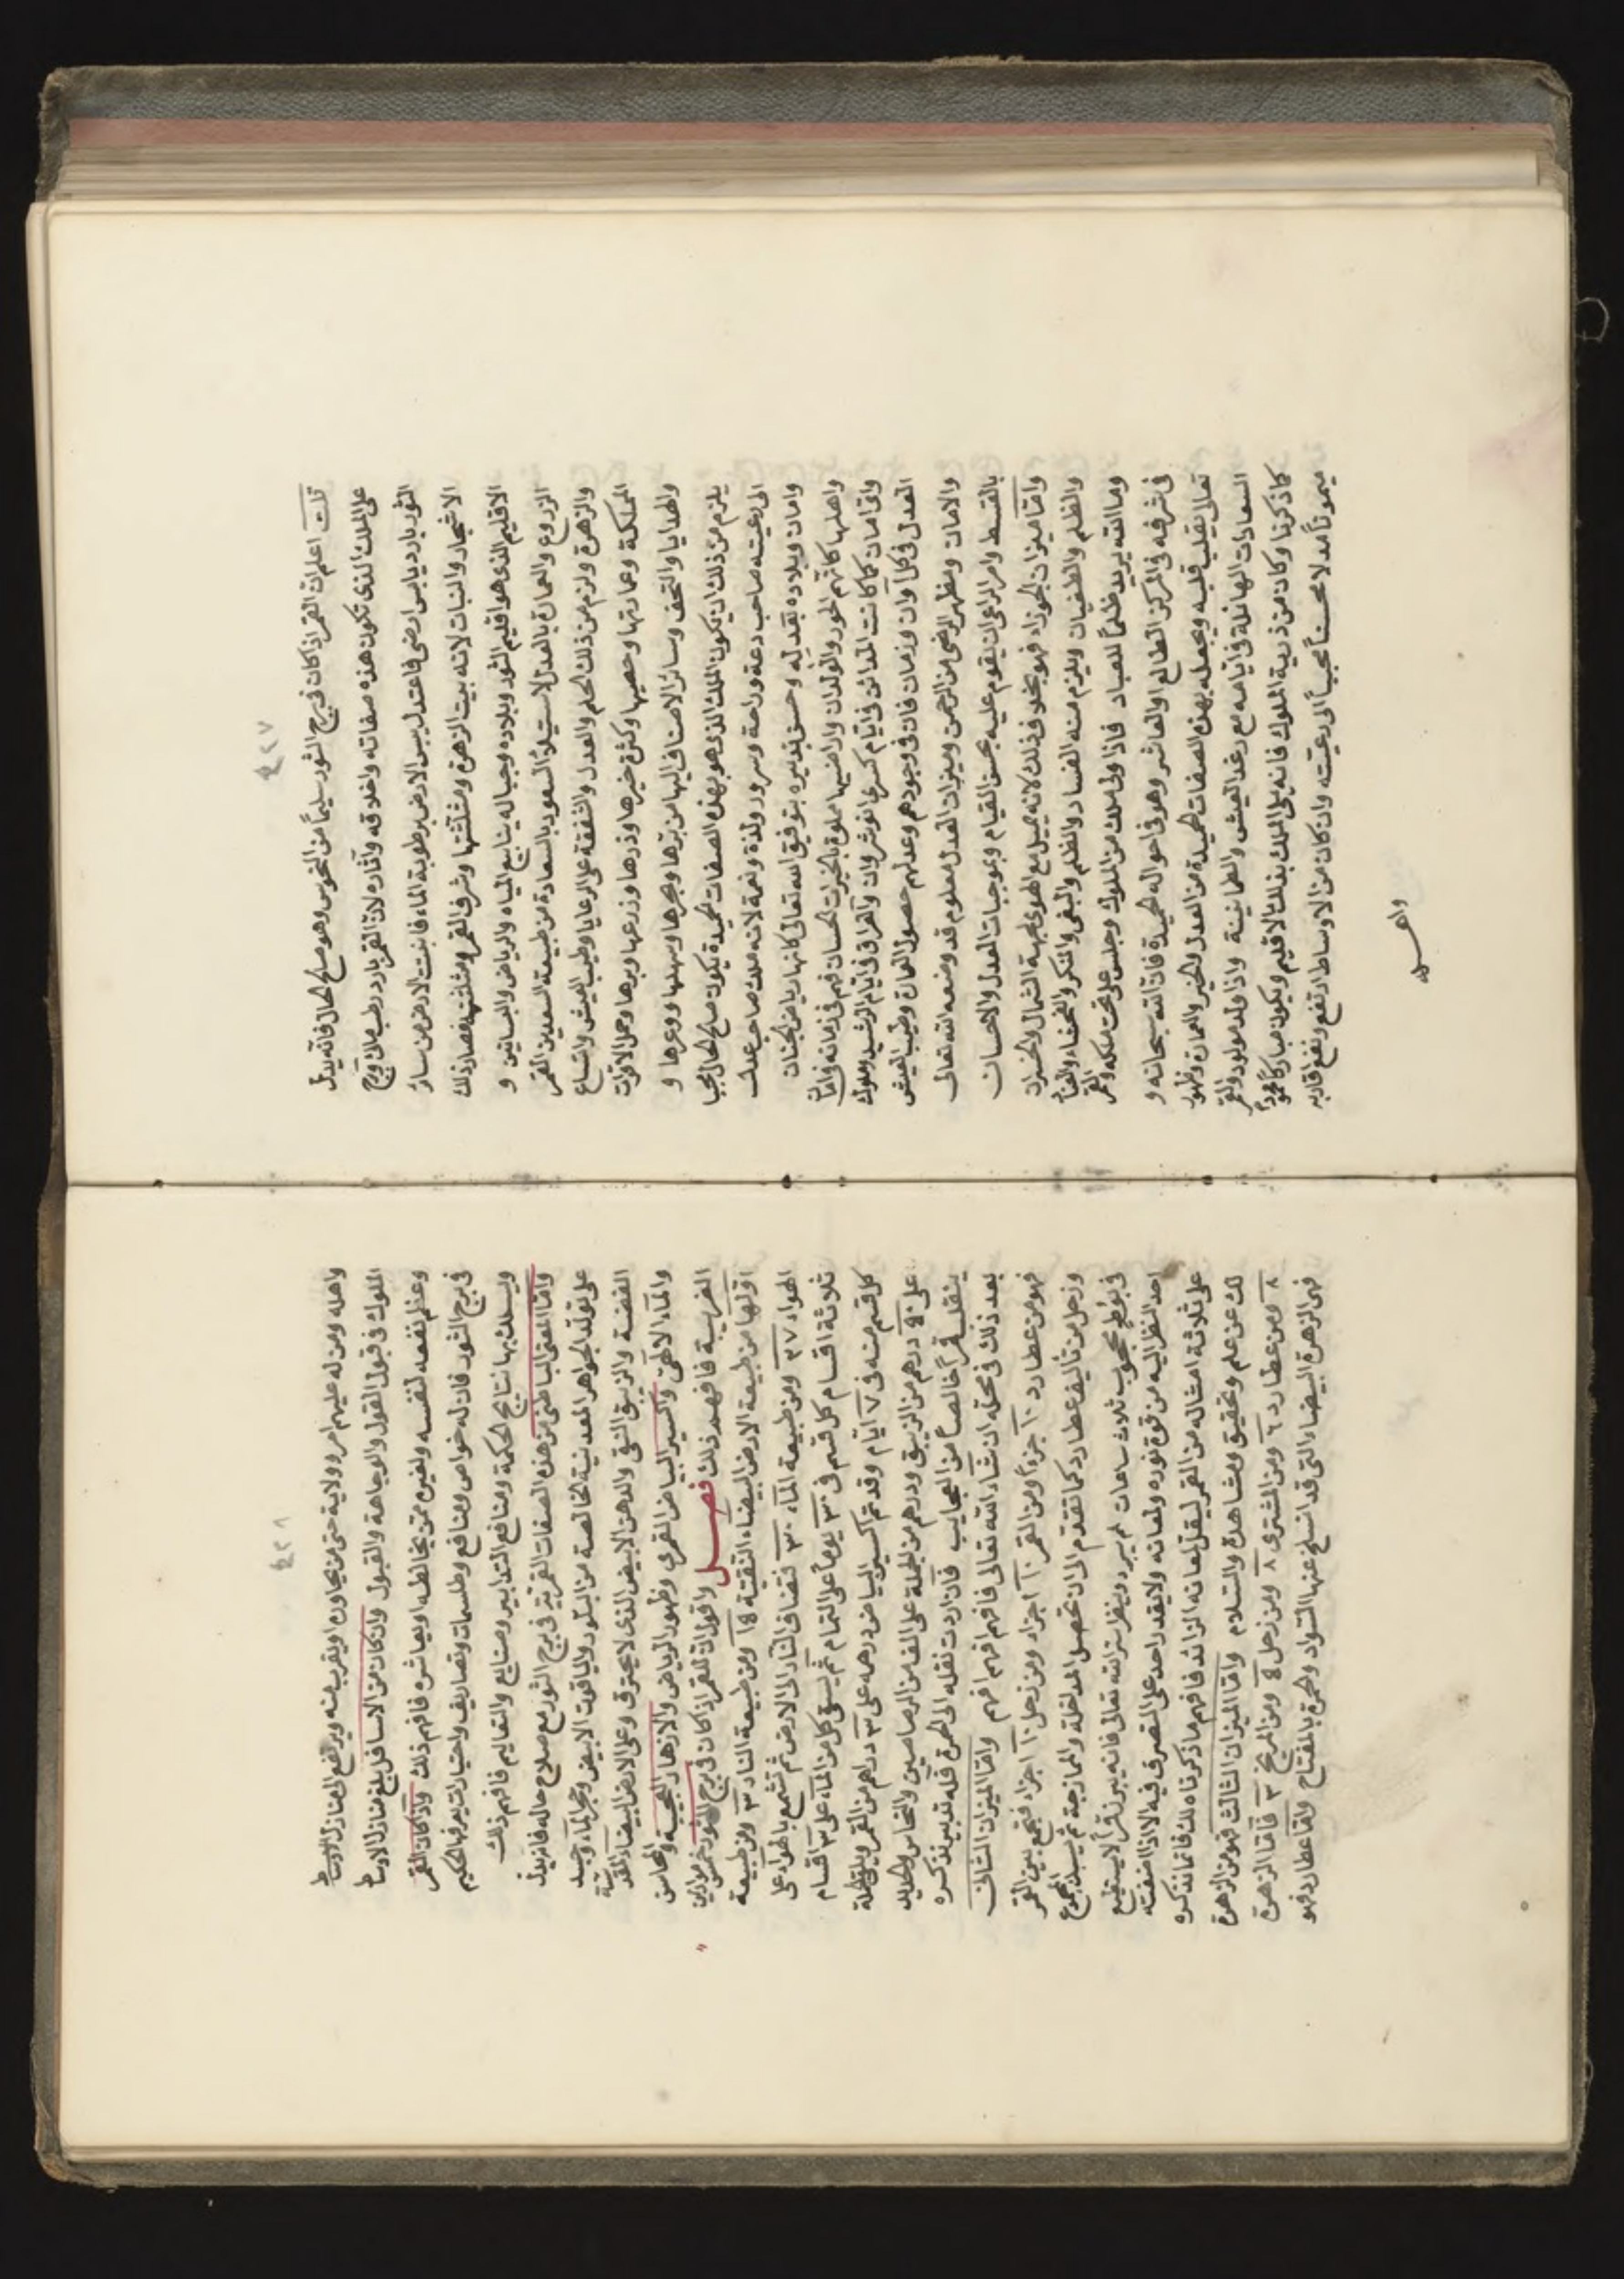 ٤٢٧
تلك اعلم ان القمر اذا كان فى برج الثور سليماً من النحوس وهو صالح الحال فانه يدل
على الملك الذى تكون هذه صفاته واخلاقه وآثاره لان القمر بارد رطب مائى وبرج
الثور بارد يابس ارضى فاعتدل يبس الارض برطوبة الماء فانبتت الارض من سائر
الاشجار والنبات لانه بيت الزهرة ومثلثتها وشرف القمر ومثلثتها فصار ذلك
الاقليم الذى هو اقليم الثور وبلاده وجباله ينابيع المياه والرياض والبساتين و
الزروع والعمارة بالعدل لاستيلاء السعود بالسعادة من طبيعة السعدين القمر
والزهرة ولزم من ذلك الحلم والعدل والشفقة على الرعايا وطيب العيش واتساع
المملكة وعمارتها وحصنها وكثرة خيرها وذرها وزرعها وبرها وحمل الاقوات
والهدايا والتحف وسائر الاصناف اليها من برها وبحرها وسهلها ووعرها و
يلزم من ذلك ان يكون الملك الذى هو بهذه الصفات الحميدة يكون صالح الحال محبا
الى رعيته صاحب دعة وراحة وسرور ولذة ونعمة لانه ملك صاحب عدل
وامان وبلاده بقدر له وحسن تدبيره بتوفيق الله تعالى كانها رياض الجنان
واهلها كانهم الحور والولدان واراضيها مملوة بالخيرات الحسان فهم فى زمانه فى امان
واى امان كما كانت المدائن فى ايام كسرى انوشروان والعراق فى ايام الرشيد وملوك
العدل فى كل آوان وزمان فان فى وجودهم وعدلهم حصول العمارة وطيب العيش
والامان ومظهر الرضى من الرحمن وميزان العدل معلوم قد وضعه الله تعالى
بالقسط وامر الراعى ان يقوم عليه بحسن القيام وبموجبات العدل والاحسان
وامّا ميزان الجوزاء فهو بخلاف ذلك لانه يميل مع الهوى لجهة الشمال والخسران
والظلم والطغيان ويلزم منه الفساد والظلم والبغى والمنكر والفحشاء والعناد
وما الله يريد ظلماً للعباد فاذا ولى ملك من الملوك وجلس على تخت ملكه والقمر
فى شرفه فى المركز الطالع او العاشر وهو فى احواله الحميدة فان الله سبحانه و
تعالى يقلب قلبه ويجعله بهذه الصفات الحميدة من العدل والخير والعمارة وظهور
السعادات الهائلة فى ايامه مع رغد العيش والطمانينة واذا ولد مولود والقمر
كما ذكرنا وكان من ذرية الملوك فانه يلى الملك بذلك الاقليم ويكون مباركاً محموداً
ميموناً مدلا محسناً محبباً الى رعيته وان كان من الاوساط ارتفع ونفع اقاربه
واهله
٤٢٨
واهله ومن له عليهم امر وولاية حتى من يجاوره او يقرب منه ويرتفع الى منازل الاوساط
الملوك فى قبول القول والوجاهة والقبول وان كان من الاسافل بلغ منازل الاوساط
وعظم نفعه لنفسه ولغيره ممن يخالطه او يعاشره فافهم ذلك واذا كان القمر
فى برج الثور فان له خواص ومنافع وطلسمات وتصاريف واختيارات يعرفها الحكيم
ويسلك بها نتايج الحكمة ومنافع التدابير وصنايع والتعاليم فافهم ذلك
وامّا المعنى الباطنى من هذه الصفات القمرية فى برج الثور مع صلاح حاله فانه يدل
على تولد الجواهر المعدنية الخالصة من البلور والياقوت الابيض وحجر الماء وجسد
الفضة والزيبق النقى والدهن الابيض الذى لا يحترق وعلى الارض البيضاء المقدسة
والماء الالهى واكسير البياض القمرى وظهور الرياض والازهار العجيبة والمحاسن
الغريبة فافهم ذلك فصل واقول ان للقمر اذا كان فى برج الثور خمس موازين
اولها من طبيعة الارض البيضاء النقية ١٨ ومن طبيعة النار ٣ ومن طبيعة
الهواء ٢٧ ومن طبيعة الماء ٣٠ فتضاف النار الى الارض ثم تشمع بالهواء على
ثلاثة اقسام كل قسم فى ٣٠ يوماً على التمام ثم يسقى كل من الماء على ٣ اقسام
كل قسم منه فى ٧ ايام وقد تم اكسير البياض درهمه على ٣ دراهم من القمر ويلقى الجملة
على ٩٠ درهم من الزيبق ودرهم من الجملة على الف من الرصاصين والنحاس والحديد
ينقلب قمراً خالصاً من العجايب فان اردت نقله الى الحمرة فله تدبير نذكره
بعد ذلك فى محله ان شاء الله تعالى فافهم افهم وامّا الميزان الثانى
فهو من عطارد ١٠ جزءاً ومن القمر ١٠ اجزاء ومن زحل ١٠ اجزاء فيجمع بين القمر
وزحل من تأليف عطارد كما تقدم الى ان تحصل المداخلة والممازجة ثم يسبك المجموع
فى بوط محجوب ثلاث ساعات ثم يبرد وينظر سر الله تعالى فانه يبرز قمراً لا يستطيع
احد النظر اليه من قوة نوره ولمعانه ولا يقدر احد على التصرف فيه الا اذا اضفته
على ثلاثة امثاله من القمر ليقل لمعانه الزائد فافهم ما ذكرناه لك فانما نذكره
لك عن علم وتحقيق ومشاهدة والسلام وامّا الميزان الثالث فهو من الزهرة
٨ ومن عطارد ٦ ومن المشترى ٨ ومن زحل ٩ ومن المريخ ٣ فامّا الزهرة
فهى الزهرة البيضاء التى قد انسلخ عنها السواد والحمرة بالمفتاح وامّا عطارد فهو